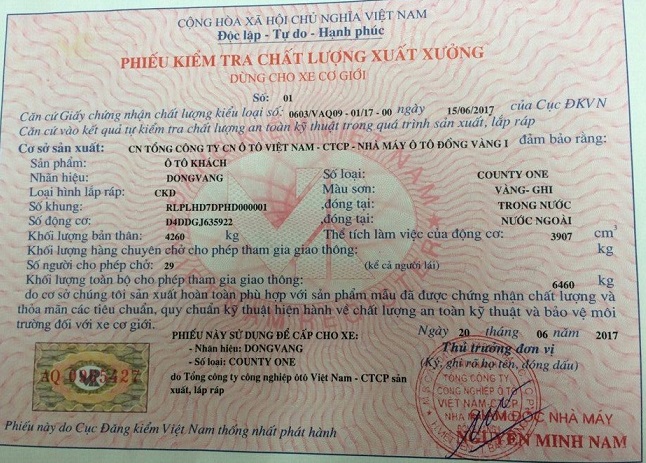 CỘNG HÒA XÃ HỘI CHỦ NGHĨA VIỆT NAM
Độc lập - Tự do - Hạnh phúc
PHIẾU KIỂM TRA CHẤT LƯỢNG XUẤT XƯỞNG
DÙNG CHO XE CƠ GIỚI
Số: 01
Căn cứ Giấy chứng nhận chất lượng kiểu loại số: 0603/VAQ09 - 01/17 - 00 ngày 15/06/2017 của Cục ĐKVN
Căn cứ vào kết quả tự kiểm tra chất lượng an toàn kỹ thuật trong quá trình sản xuất, lắp ráp
Cơ sở sản xuất: CN TỔNG CÔNG TY CN Ô TÔ VIỆT NAM - CTCP - NHÀ MÁY Ô TÔ ĐỒNG VÀNG I đảm bảo rằng:
Sản phẩm: Ô TÔ KHÁCH
Nhãn hiệu: DONGVANG Số loại: COUNTY ONE
Loại hình lắp ráp: CKD Màu sơn: VÀNG- GHI
Số khung: RLPLHD7DPHD000001 ,đóng tại: TRONG NƯỚC
Số động cơ: D4DDGJ635922 ,đóng tại: NƯỚC NGOÀI
Khối lượng bản thân: 4260 kg Thể tích làm việc của động cơ: 3907 cm3
Khối lượng hàng chuyên chở cho phép tham gia giao thông: kg
Số người cho phép chở: 29 (kể cả người lái)
Khối lượng toàn bộ cho phép tham gia giao thông: 6460 kg
do cơ sở chúng tôi sản xuất hoàn toàn phù hợp với sản phẩm mẫu đã được chứng nhận chất lượng và
thỏa mãn các tiêu chuẩn, quy chuẩn kỹ thuật hiện hành về chất lượng an toàn kỹ thuật và bảo vệ môi
trường đối với xe cơ giới.
Ngày 20 tháng 06 năm 2017
PHIẾU NÀY SỬ DỤNG ĐỂ CẤP CHO XE:
- Nhãn hiệu: DONGVANG
- Số loại: COUNTY ONE
do Tổng công ty công nghiệp ôtô Việt Nam - CTCP sản
xuất, lắp ráp
Thủ trưởng đơn vị
(Ký, ghi rõ họ tên, đóng dấu)
TỔNG CÔNG TY
CÔNG NGHIỆP Ô TÔ
VIỆT NAM-CTCP
NHÀ MÁY
GIÁM ĐỐC NHÀ MÁY
NGUYỄN MINH NAM
Phiếu này do Cục Đăng kiểm Việt Nam thống nhất phát hành